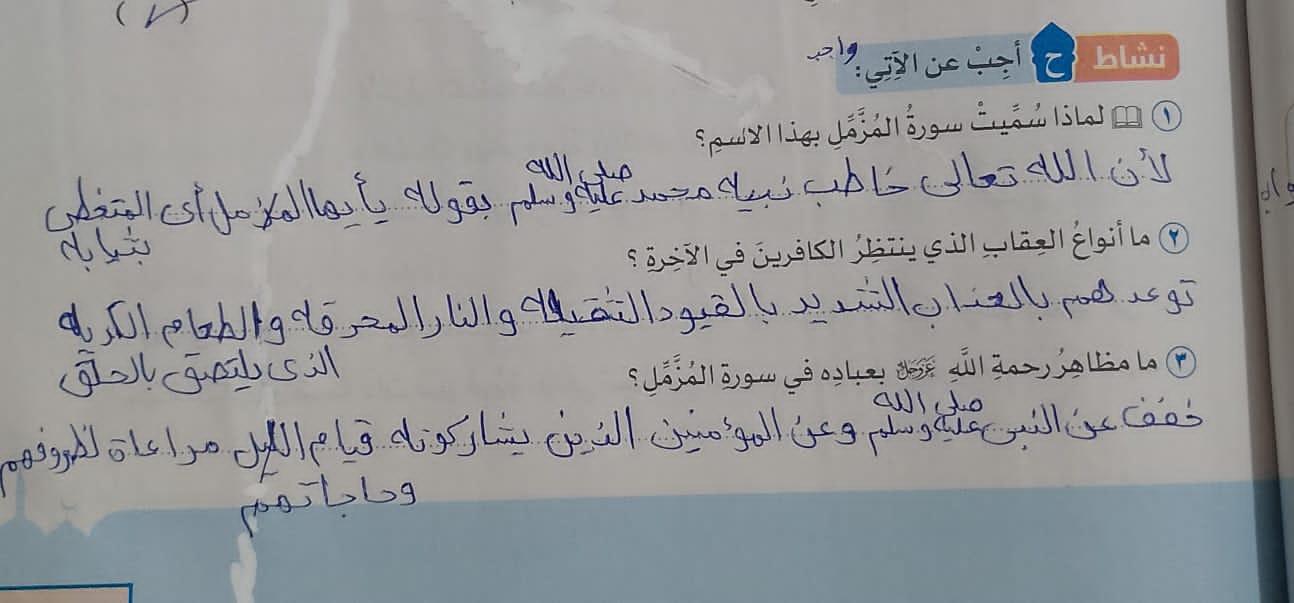 نشاط ح أَجِبْ عن الآتِي: واجب
١ لماذا سُمِّيتْ سورةُ المُزَّمِّلِ بهذا الاسمِ؟
صلى الله
لأن الله تعالى خاطب نبيه محمد عليه وسلم بقوله يأيها المزمل أى المتغطى
بثيابه
٢ ما أنواعُ العِقابِ الذي ينتظِرُ الكافرينَ في الآخِرةِ؟
توعدهم بالعذاب الشديد بالقيود الثقيلة والنار المحرقه والطعام الكريه
الذى يلتصق بالحلق
٣ ما مظاهِرُ رحمةِ اللَّهِ عَزَّوَجَلَّ بعبادِه في سورةِ المُزَّمِّلِ؟
صلى الله
خفف عن النبى عليه وسلم وعن المؤمنين الذين يشاركونه قيام الليل مراعاة لظروفهم
وحاجاتهم